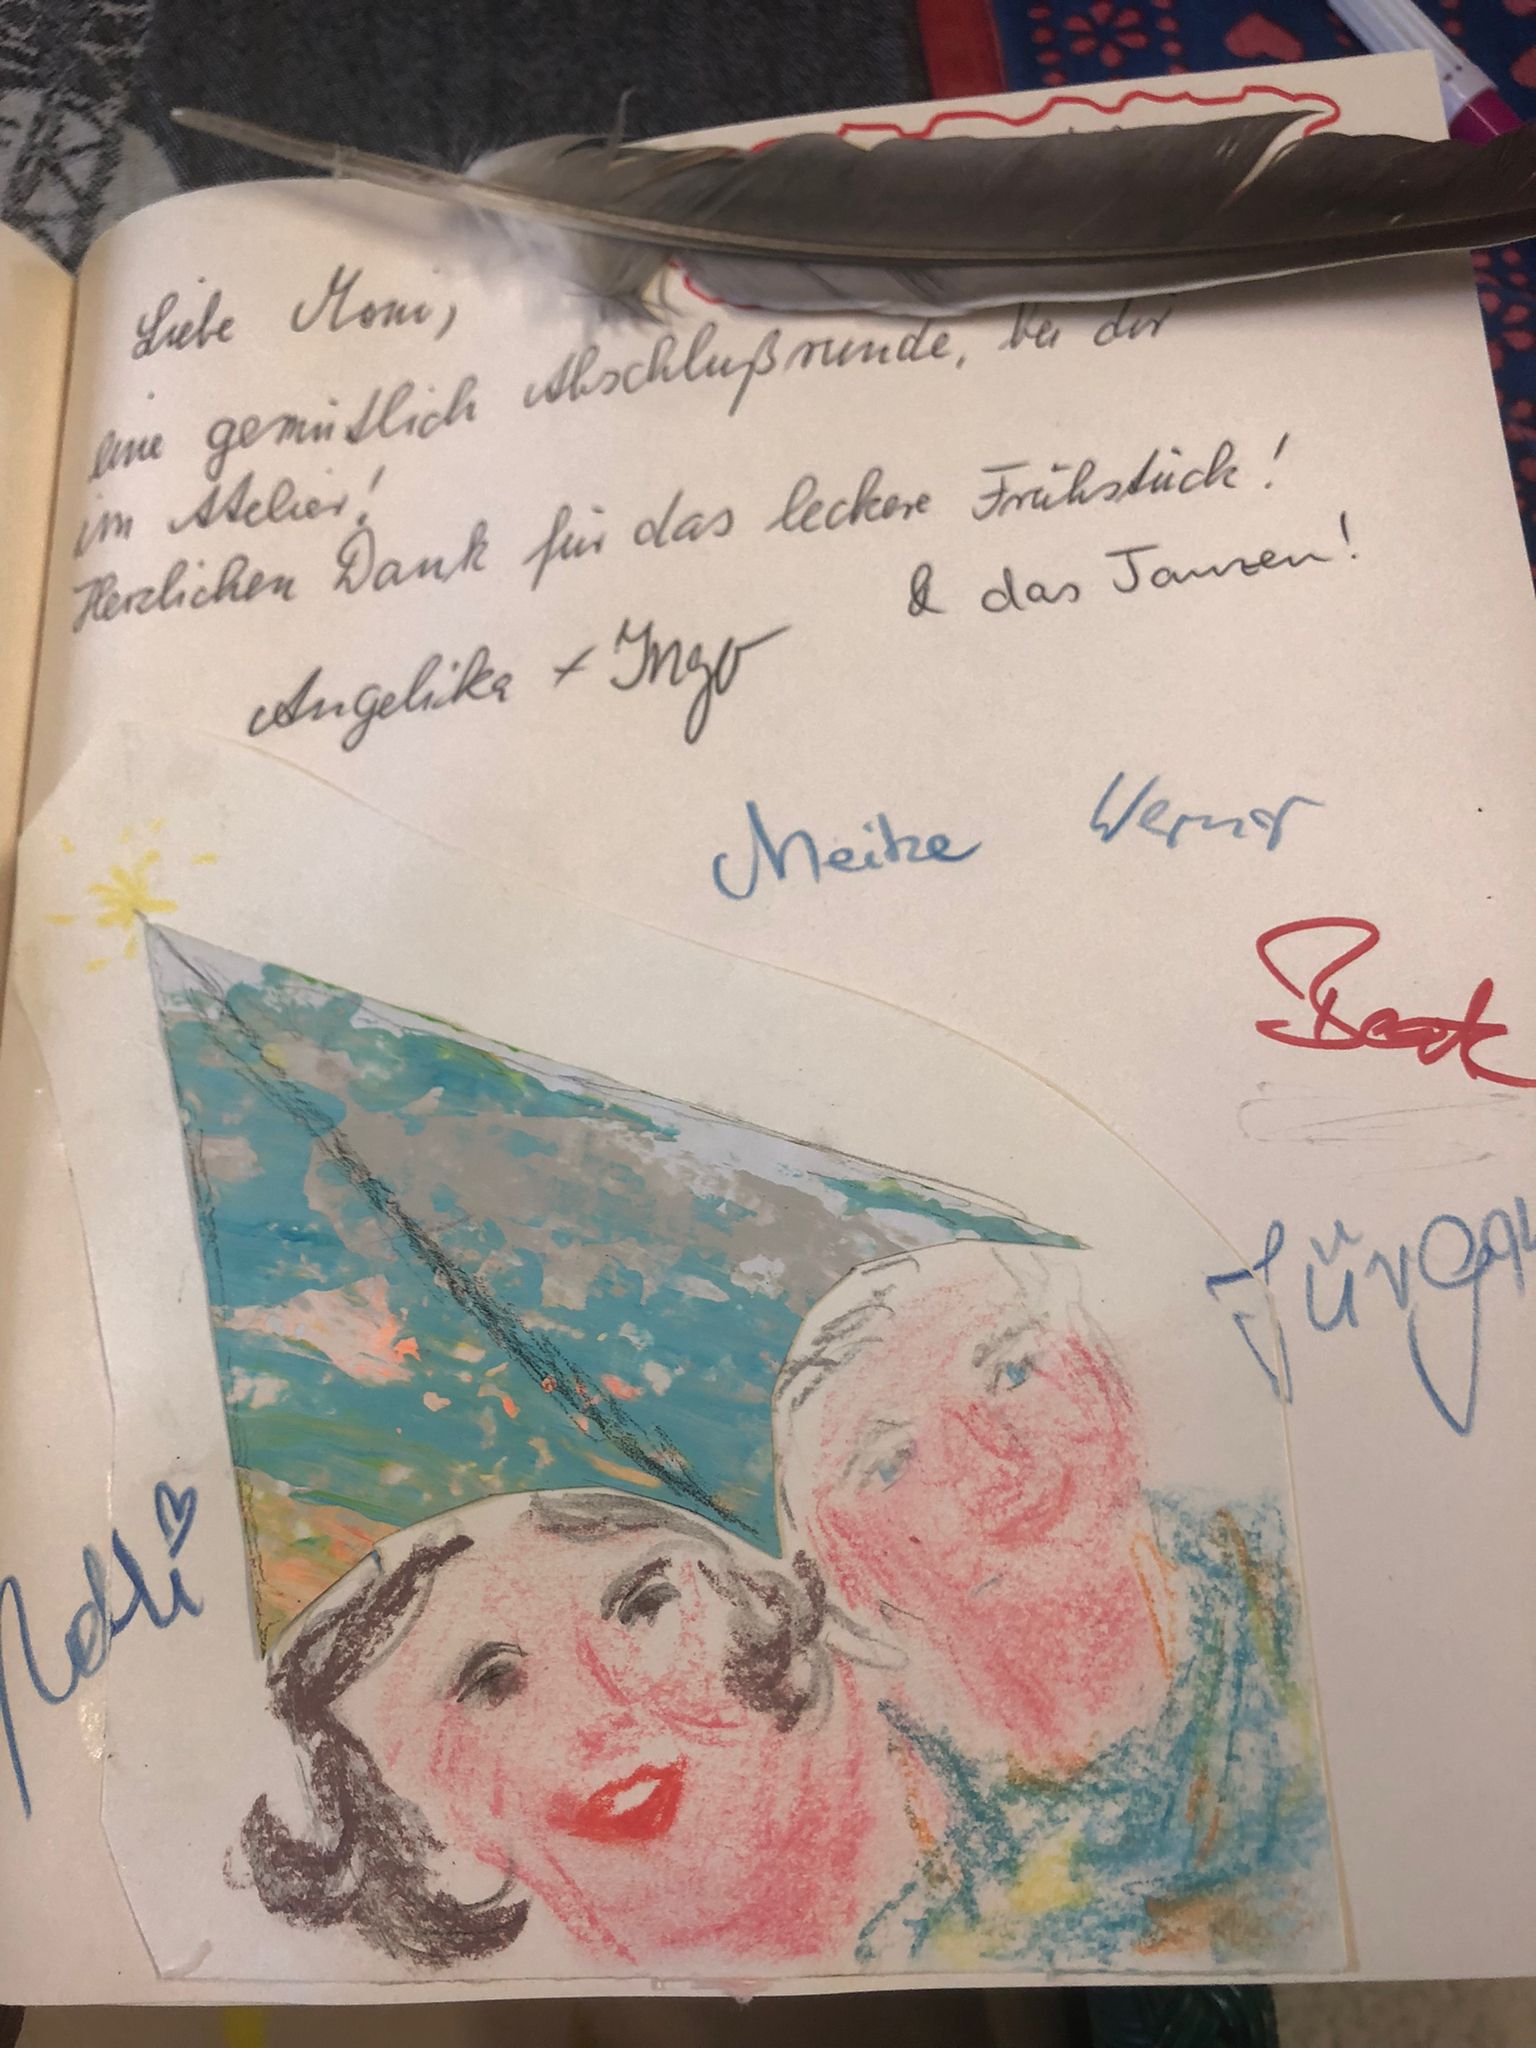 Liebe Moni,
eine gemütlich Abschlußrunde, bei dir
im Atelier!
Herzlichen Dank für das leckere Frühstück!
& das Tanzen!
Angelika + Ingo
Meike Werner
Beate
Jürgen